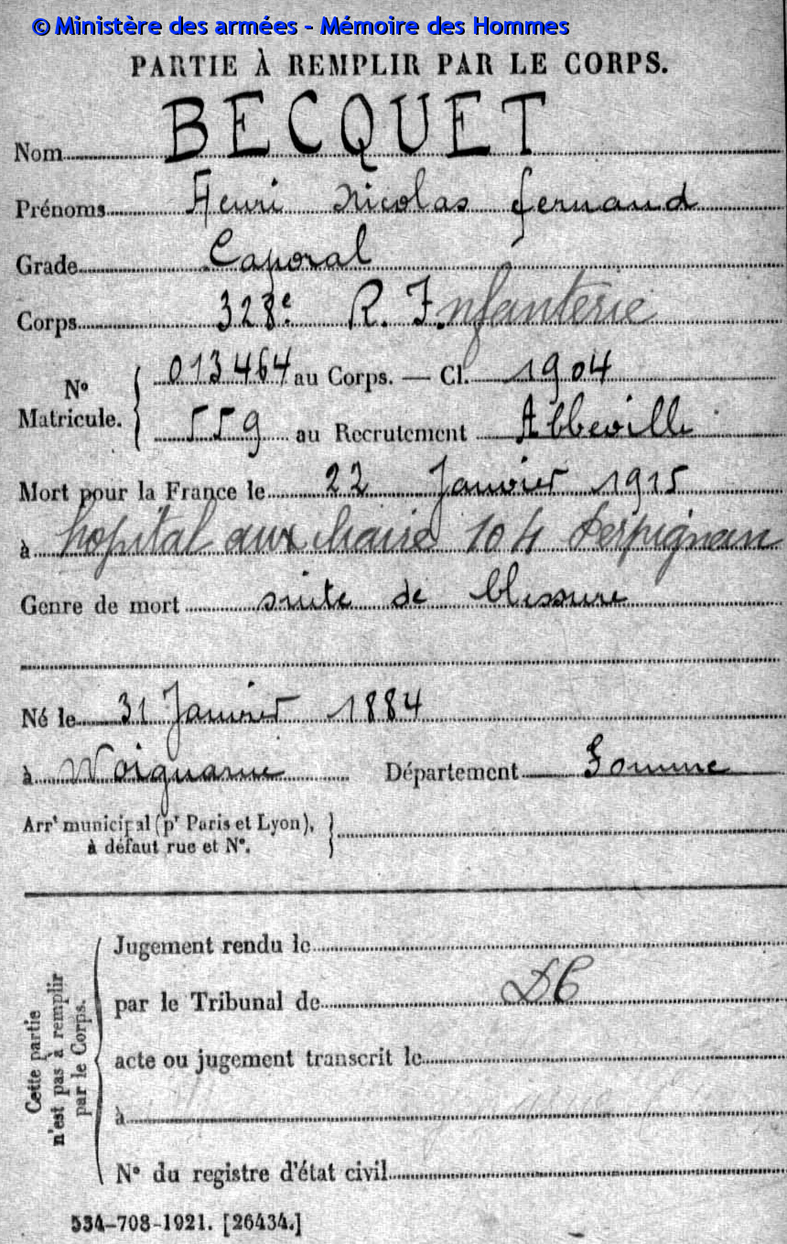 © Ministère des armées - Mémoire des Hommes
PARTIE À REMPLIR PAR LE CORPS.
Nom BECQUET
Prénoms Henri Nicolas Fernand
Grade Caporal
Corps 328e R. Infanterie
N° Matricule. 013464 au Corps. — Cl. 1904
559 au Recrutement Abbeville
Mort pour la France le 22 Janvier 1915
à hopital auxiliaire 104 Perpignan
Genre de mort suite de blessure
Né le 31 Janvier 1884
à Woignarue Département Somme
Arrt municipal (pr Paris et Lyon),
à défaut rue et N°.
Cette partie
n'est pas à remplir
par le Corps.
Jugement rendu le
par le Tribunal de DC
acte ou jugement transcrit le
à
N° du registre d'état civil
534-708-1921. [26434.]